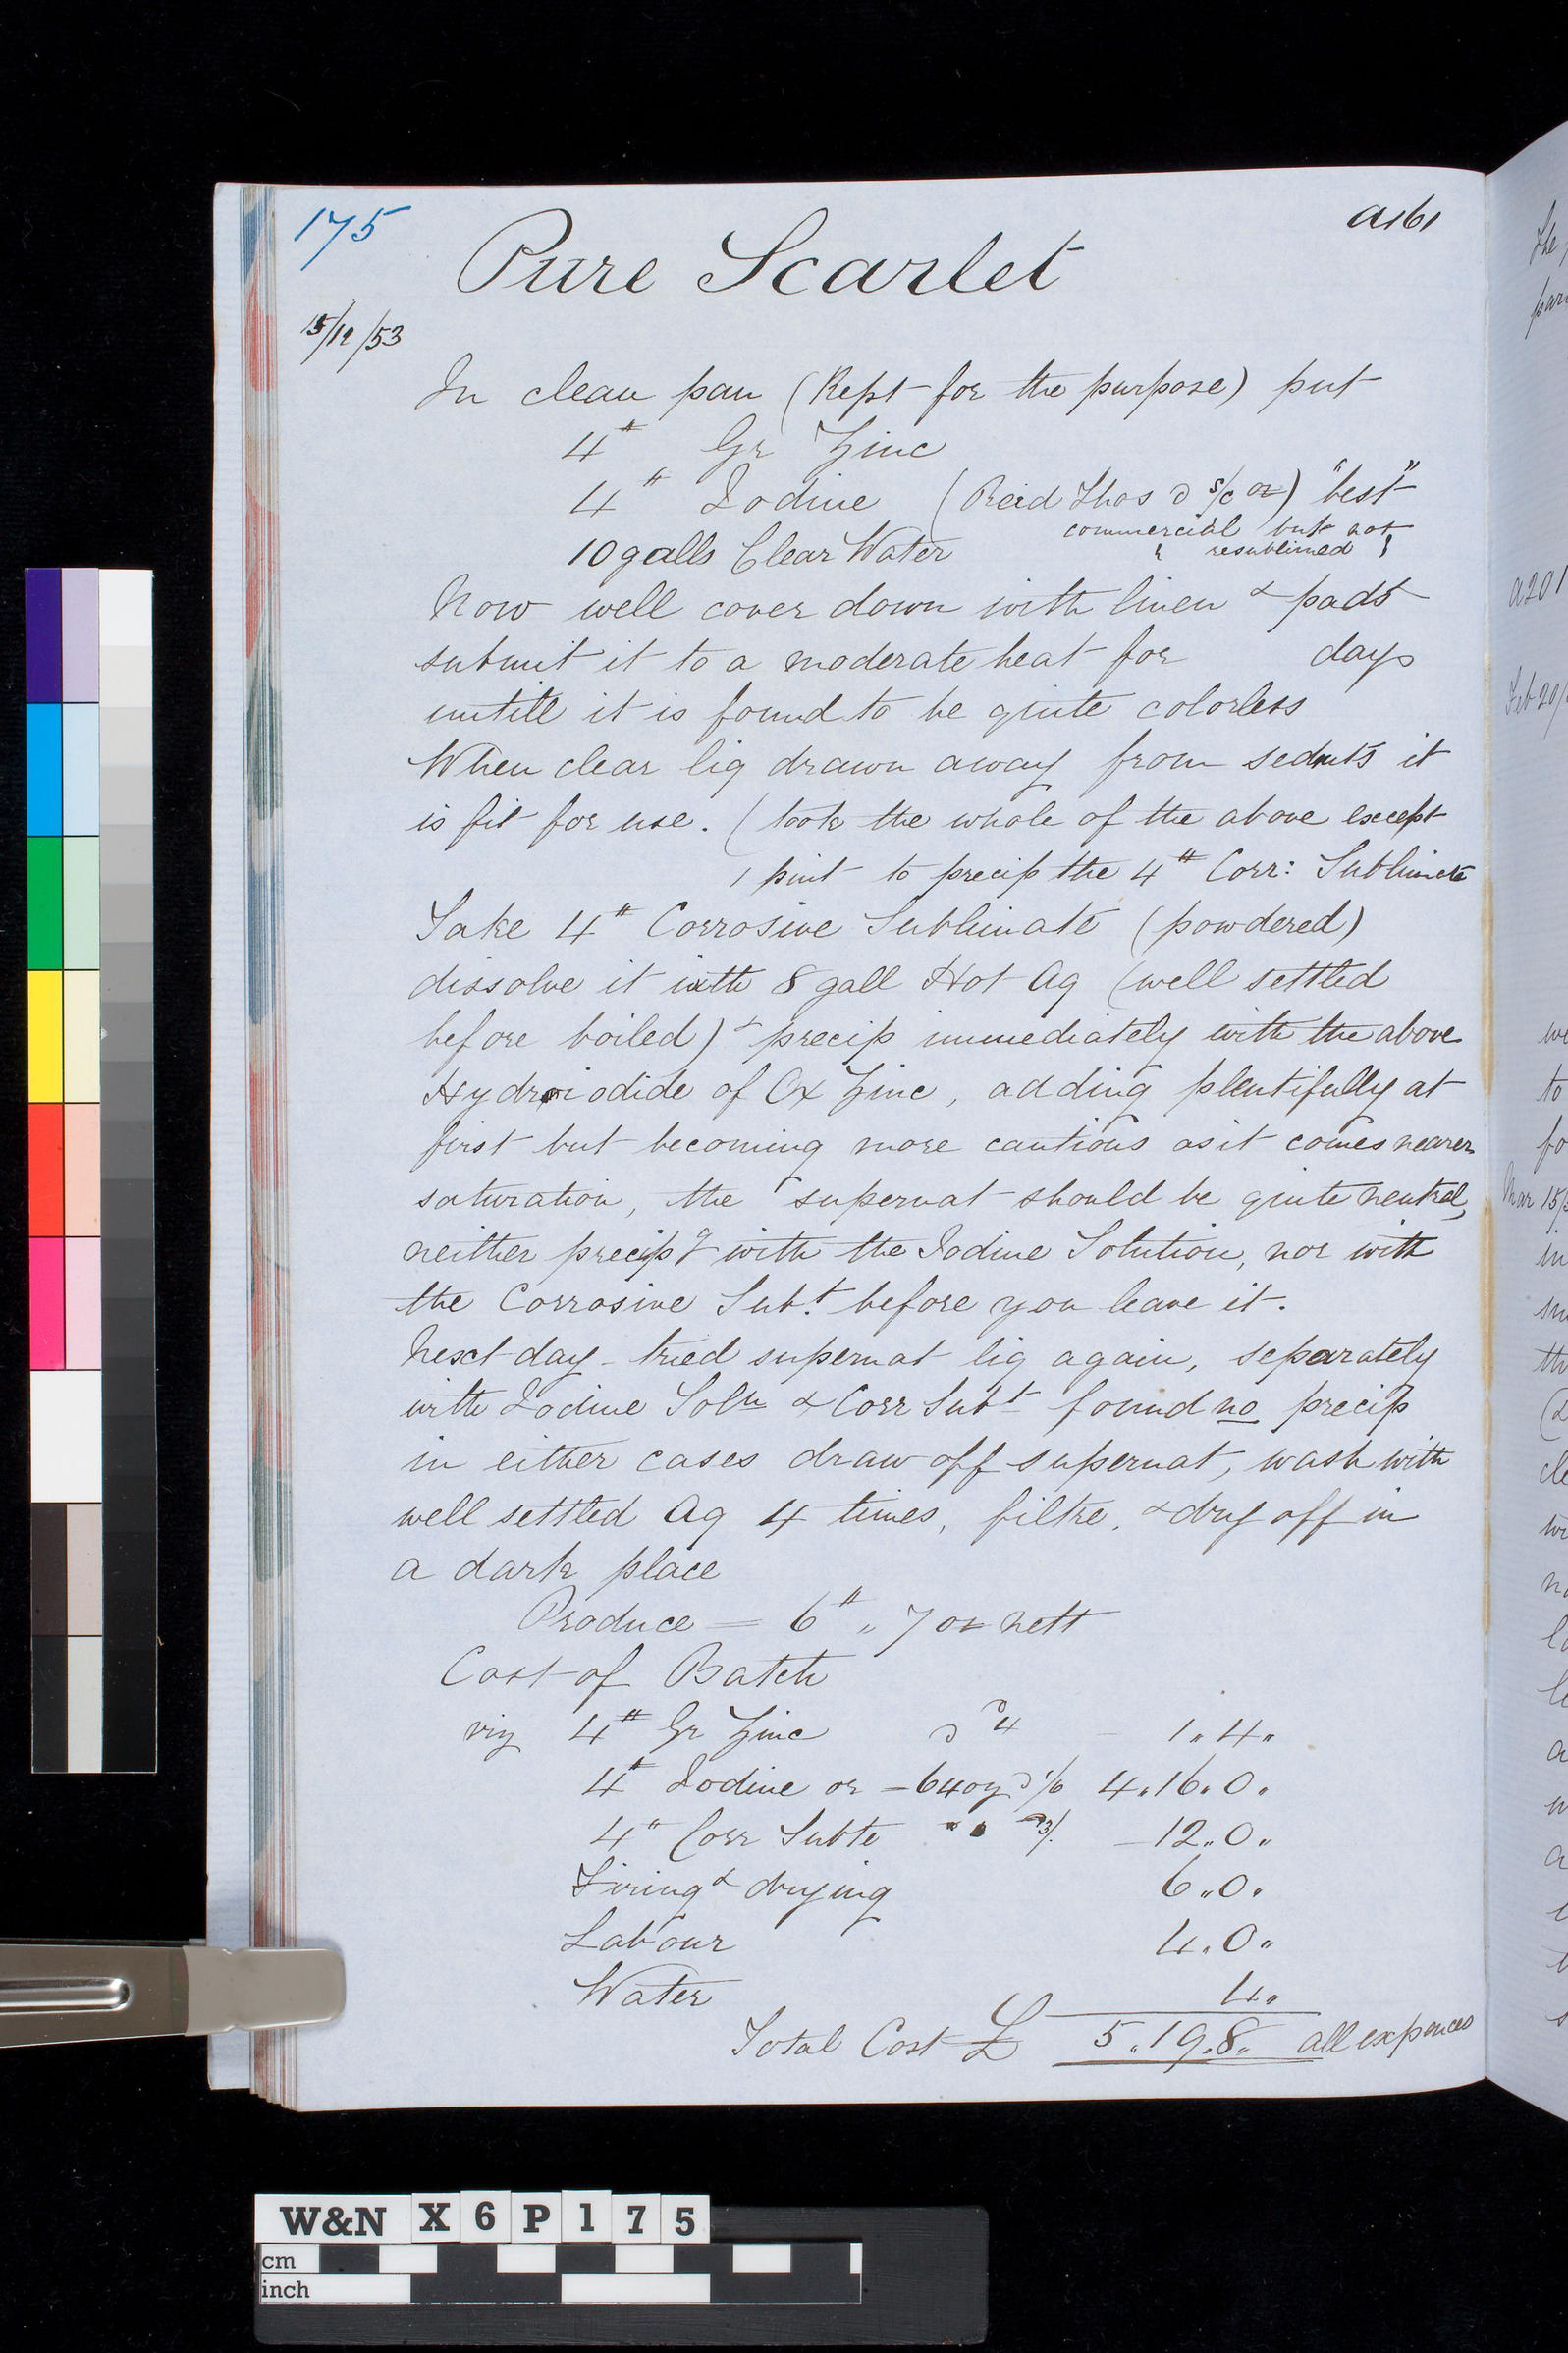 175
a161
Pure Scarlet
15/12/53
In clean pan (Kept for the purpose) put
4 # Gr Zinc
4 " Iodine ( Reid Thos @ s/c oz) "best"
commercial but not
resublimed
10 galls Clear Water
Now well cover down with linen & pads
submit it to a moderate heat for days
untill it is found to be quite colorless
When clear liq drawn away from sedmts it
is fit for use. ( took the whole of the above except
1 pint to precip the 4 # Corr: Sublimate
Take 4 # Corrosive Sublimate (powdered)
dissolve it with 8 gall Hot Aq (well settled
before boiled) & precip immediately with the above
Hydroiodide of Ox Zinc, adding plentifully at
first but becoming more cautious as it comes nearer
saturation, the supernat should be quite neutral,
neither precipg with the Iodine Solution, nor with
the Corrosive Subt. before you leave it.
Next day - tried supernat liq again, separately
with Iodine Soln & Corr Subt found no precip
in either cases draw off supernat, wash with
well settled Aq 4 times, filtre, & dry off in
a dark place
Produce = 6 # " 7 oz nett
Cost of Batch
viz 4 # Gr Zinc @ 4 - 1 " 4 "
4 # Iodine or - 64 oz @ 1/6 4 " 16 " 0 "
4 " Corr Subte " " @ 3/. - 12 " 0 "
Firing & drying 6 " 0 "
Labour 4 " 0 "
Water 4 "
Total Cost £ 5 " 19 " 8 " all expences
a201
Feb 20/
Mar 15/
W&N X6P175
cm
inch